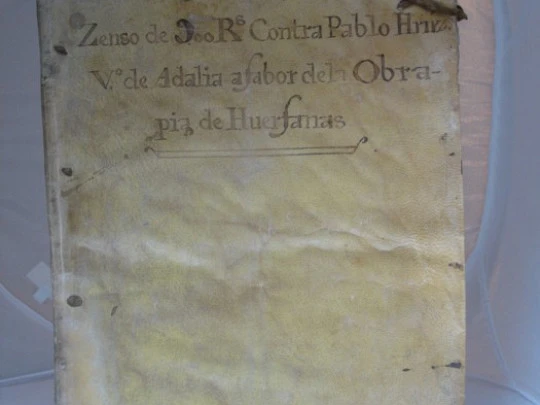 Zenso de 300 R.s Contra Pablo Hrnz.
V.º de Adalia afabor de la Obra-
pia de Huerfanas